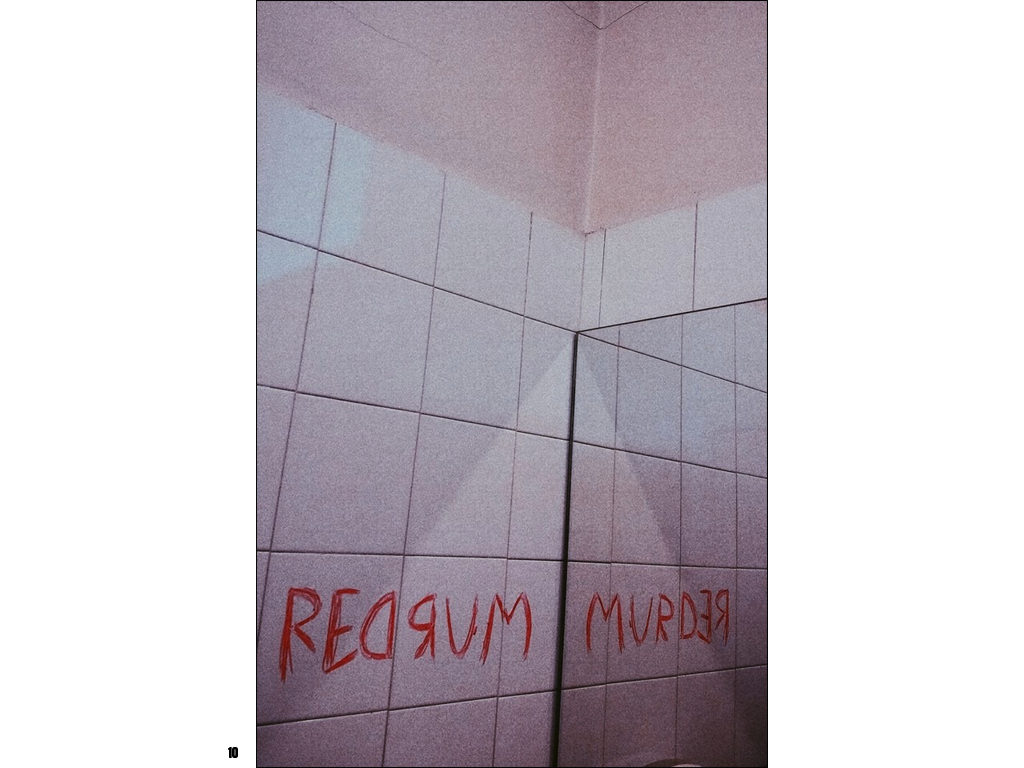 REDRUM MURDER
10